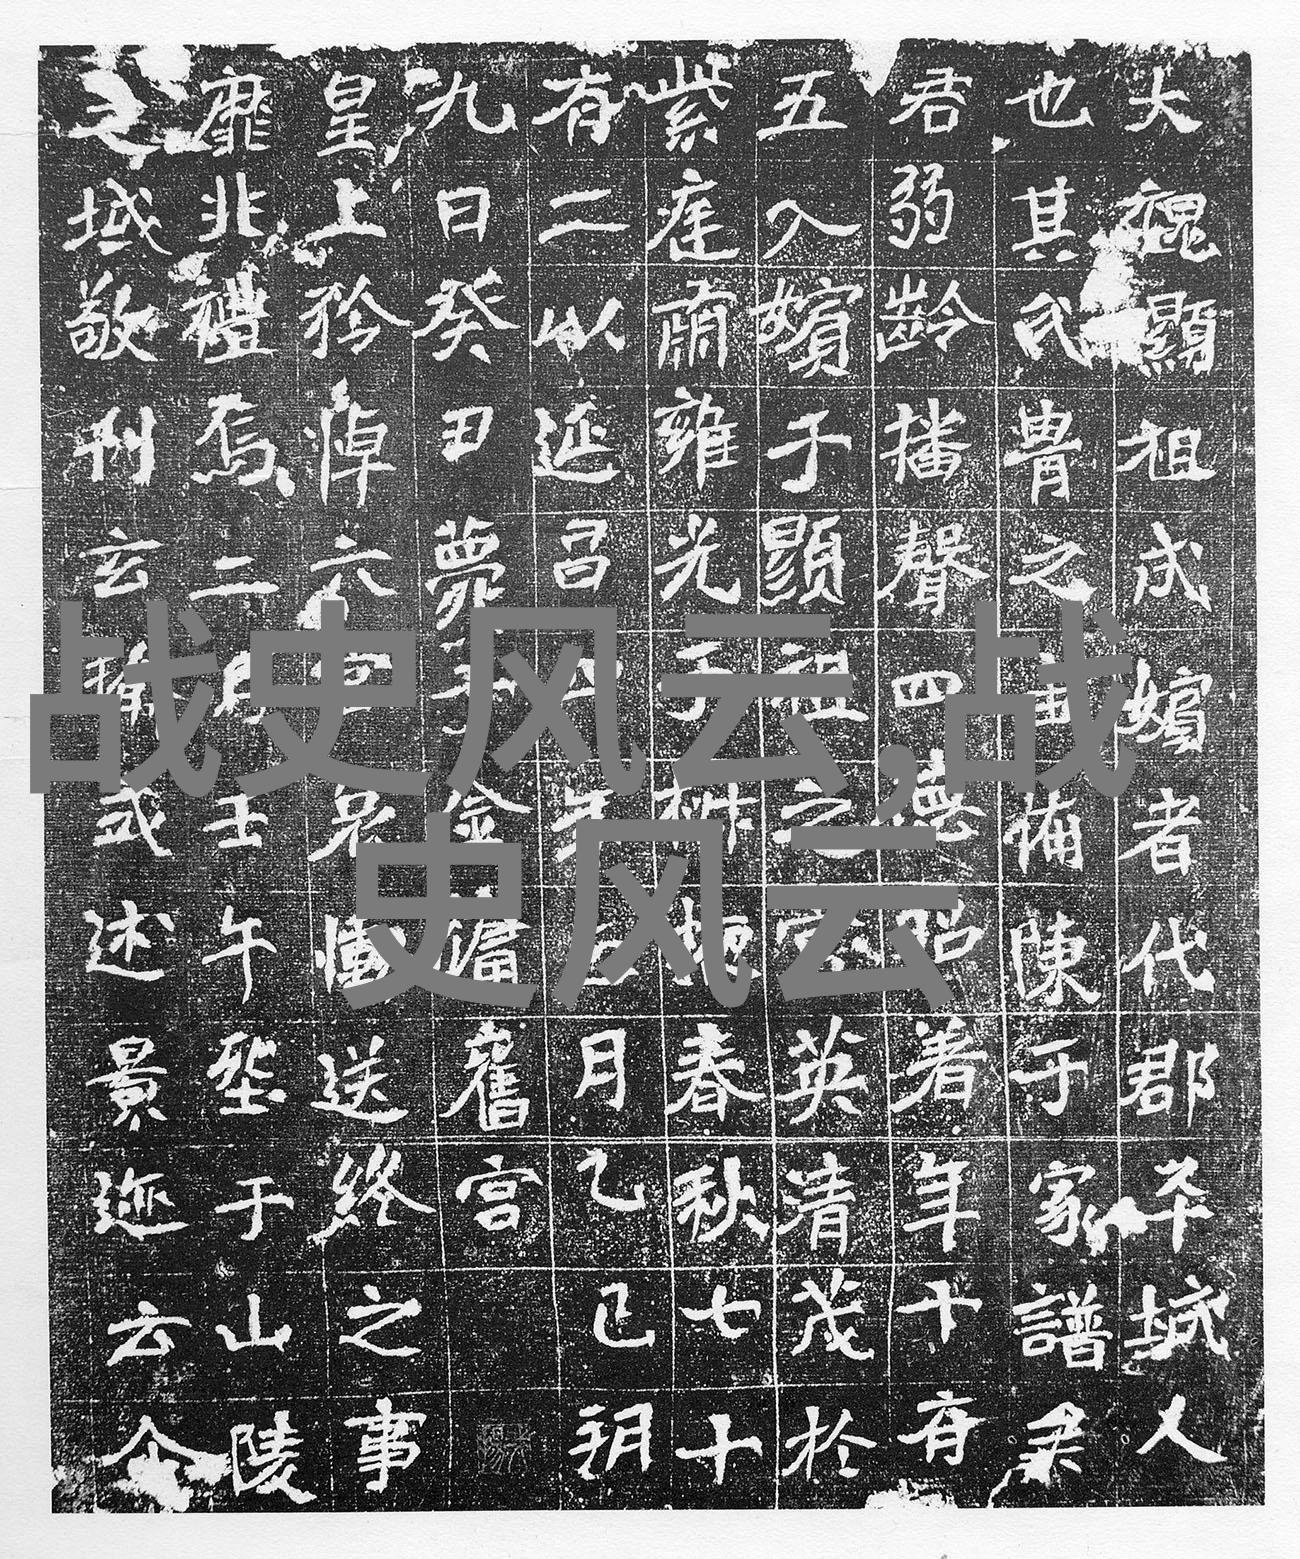 大魏顯祖成嬪者代郡平城人
也其氏胄之由備陳于家譜
君弱齡播聲四德昭著年十有
五入嬪于顯祖之宮英清茂於
紫庭肅雍光于椒掖春秋七十
有二以延昌四年正月乙巳朔
九日癸丑薨于金墉舊宮
皇上矜悼六宮哀慟送終之事
靡非禮焉二月壬午塟于山陵
之域敬刊玄瑜式述景迹云尒
战史风云,战
史风云